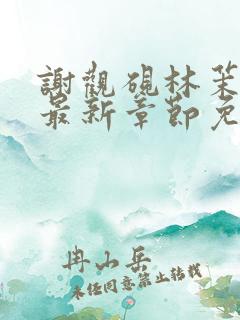 謝觀硯林茉
最新章節免
冉小岳
未经同意禁止转载